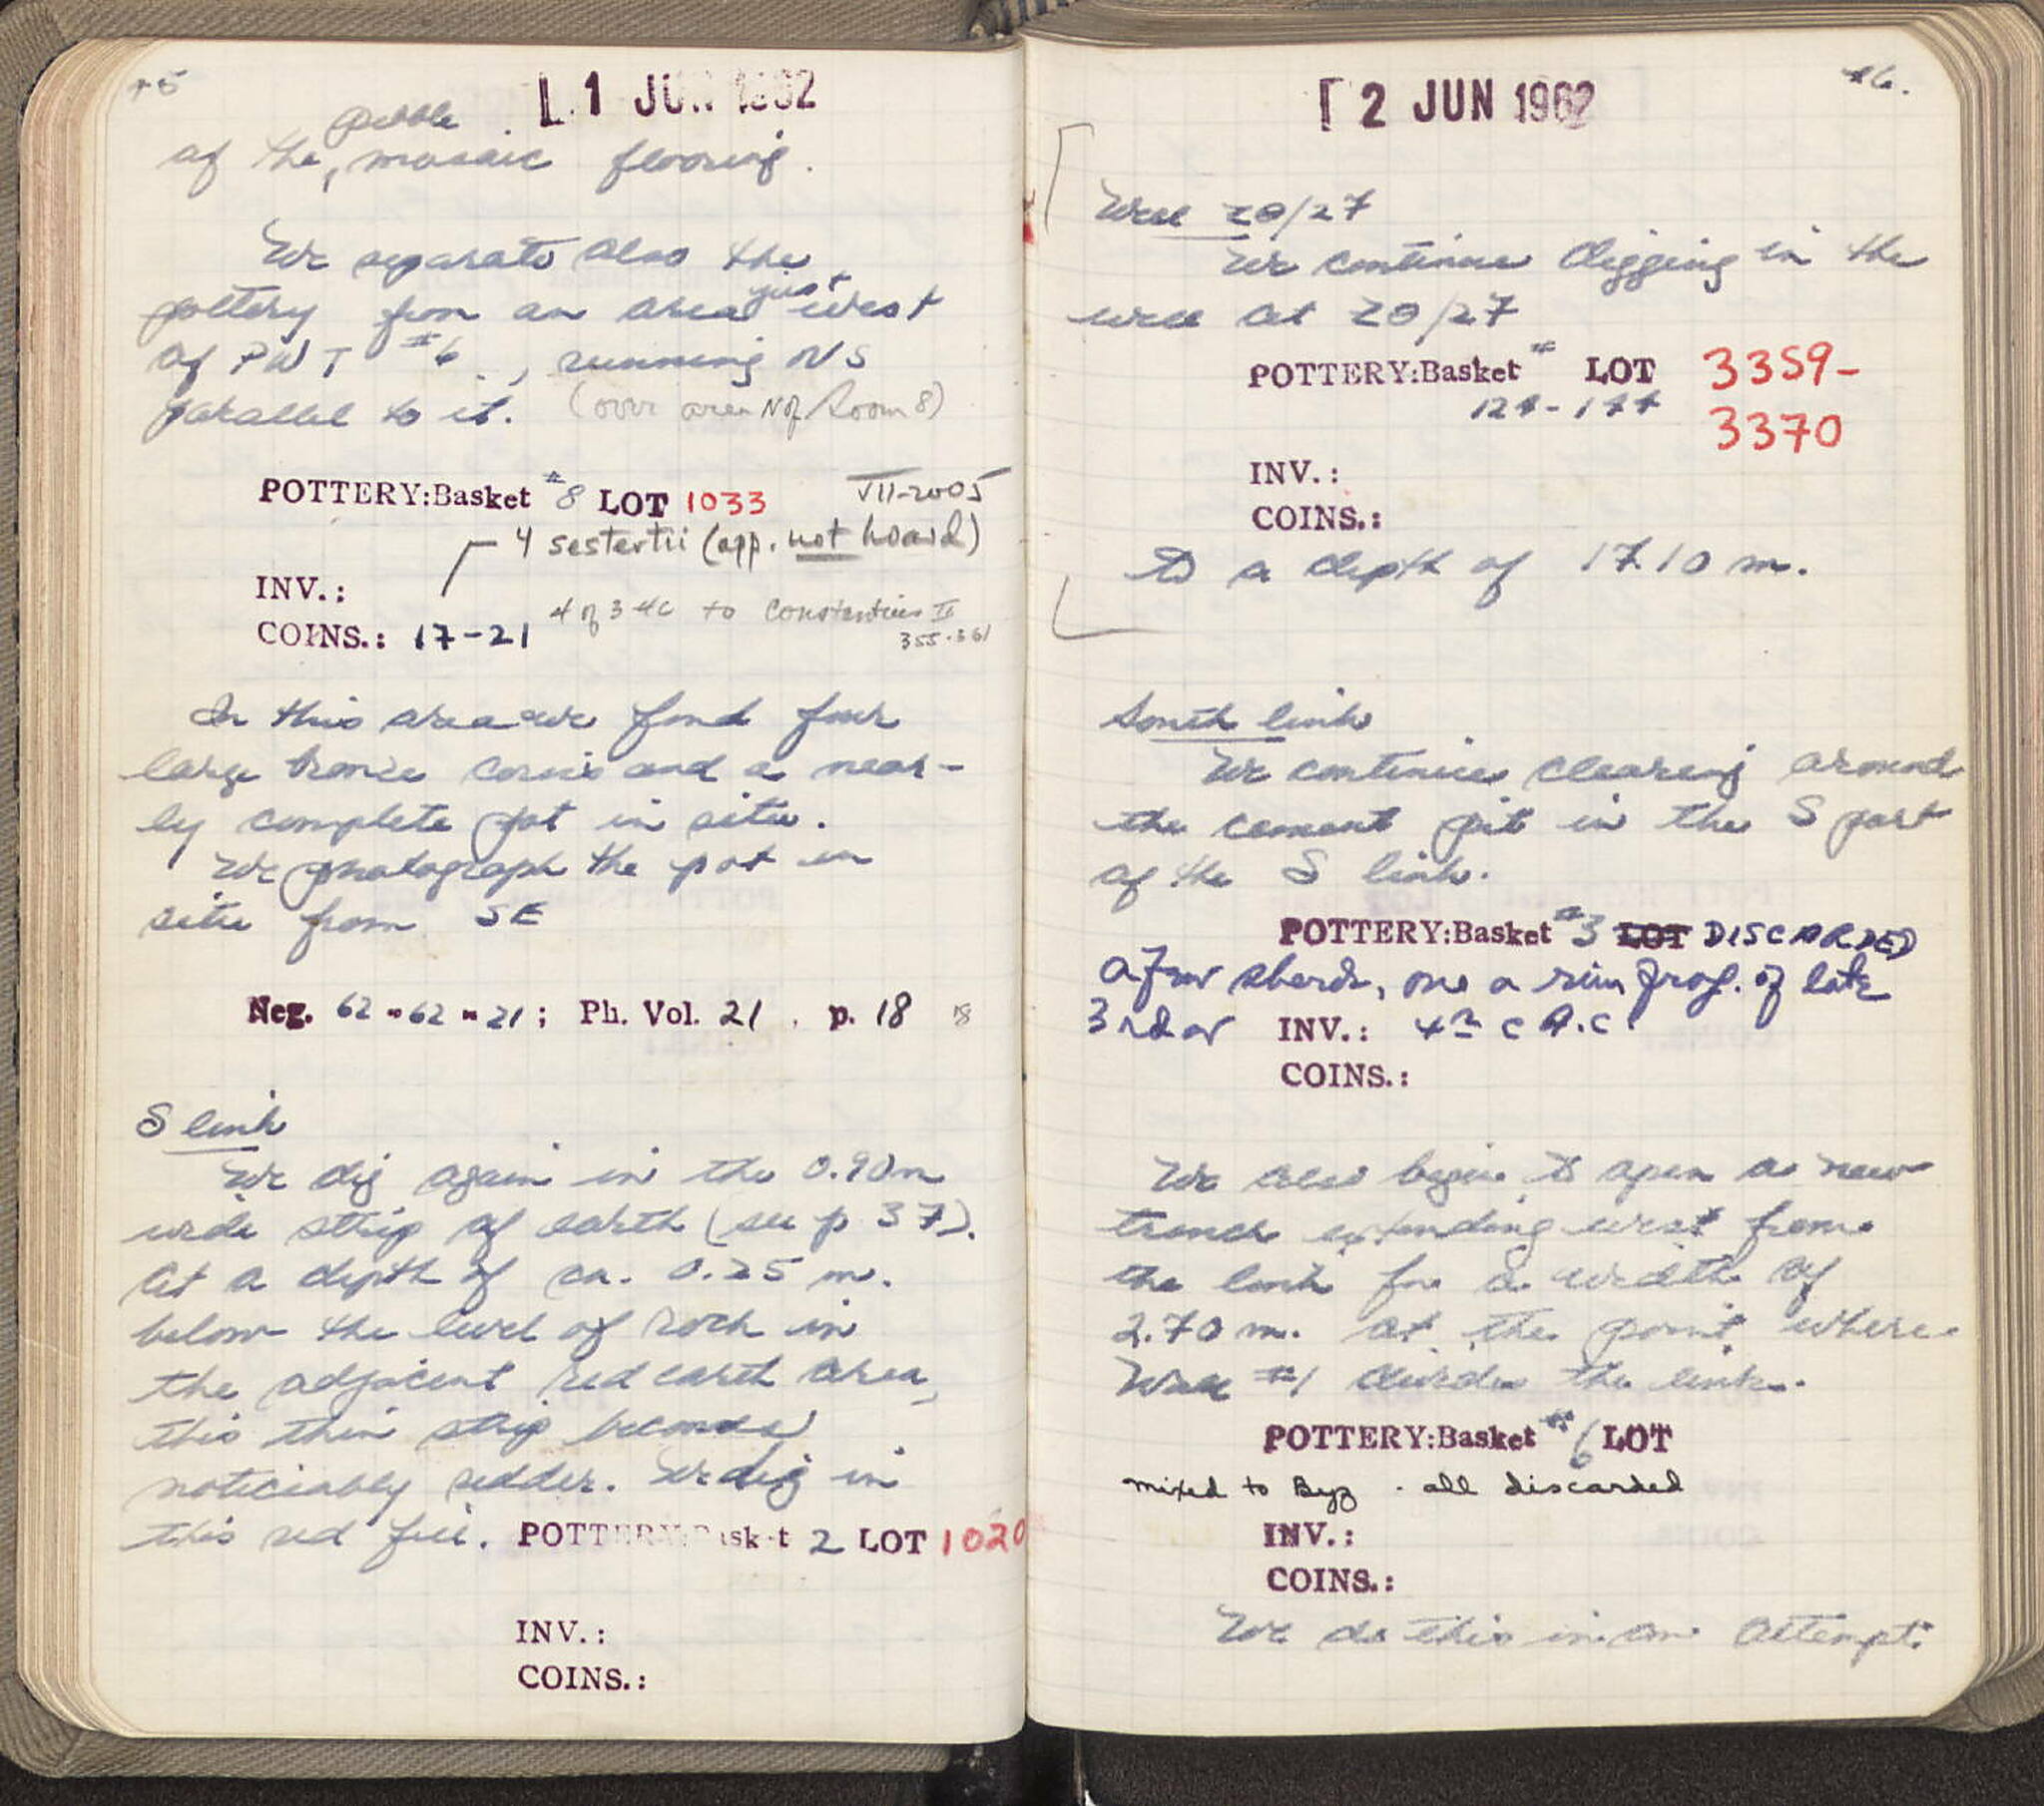 45
[ 1 JUN 1962
pebble
of the, mosaic flooring.
We separate also the
just
pottery from an area west
of PWT #6, running NS
parallel to it. (over area N of Room 8)
POTTERY:Basket #8 LOT 1033 VII-2005
4 sestertii (app. not hoard)
INV.:
4 of 3-4c to Constantius II
COINS.: 17-21 355-361
In this area we fond four
large bronze coins and a near-
ly complete pot in situ.
We photograph the pot in
situ from SE
Neg. 62-62-21; Ph. Vol. 21, p. 18 18
S link
We dig again in the 0.90m
wide strip of earth (see p 37).
At a depth of ca. 0.25 m.
below the level of rock in
the adjacent red earth area,
this thin strip becomes
noticeably redder. We dig in
this red fill. POTTERY:Basket 2 LOT 1020
INV.:
COINS.:
46.
[ 2 JUN 1962
Well 20/27
We continue digging in the
well at 20/27
POTTERY:Basket # LOT 3359-
124-144 3370
INV.:
COINS.:
to a depth of 17.10 m.
South link
We continue clearing around
the cement pit in the S part
of the S link.
POTTERY:Basket #3 LOT DISCARDED
A few sherds, one a rim frag. of late
3rd or INV.: 4th c A.C.
COINS.:
We also begin to open a new
trench extending west from
the link for a width of
2.70 m. at the point where
Wall #1 divides the link.
POTTERY:Basket #6 LOT
mixed to Byz - all discarded
INV.:
COINS.:
We do this in an attempt